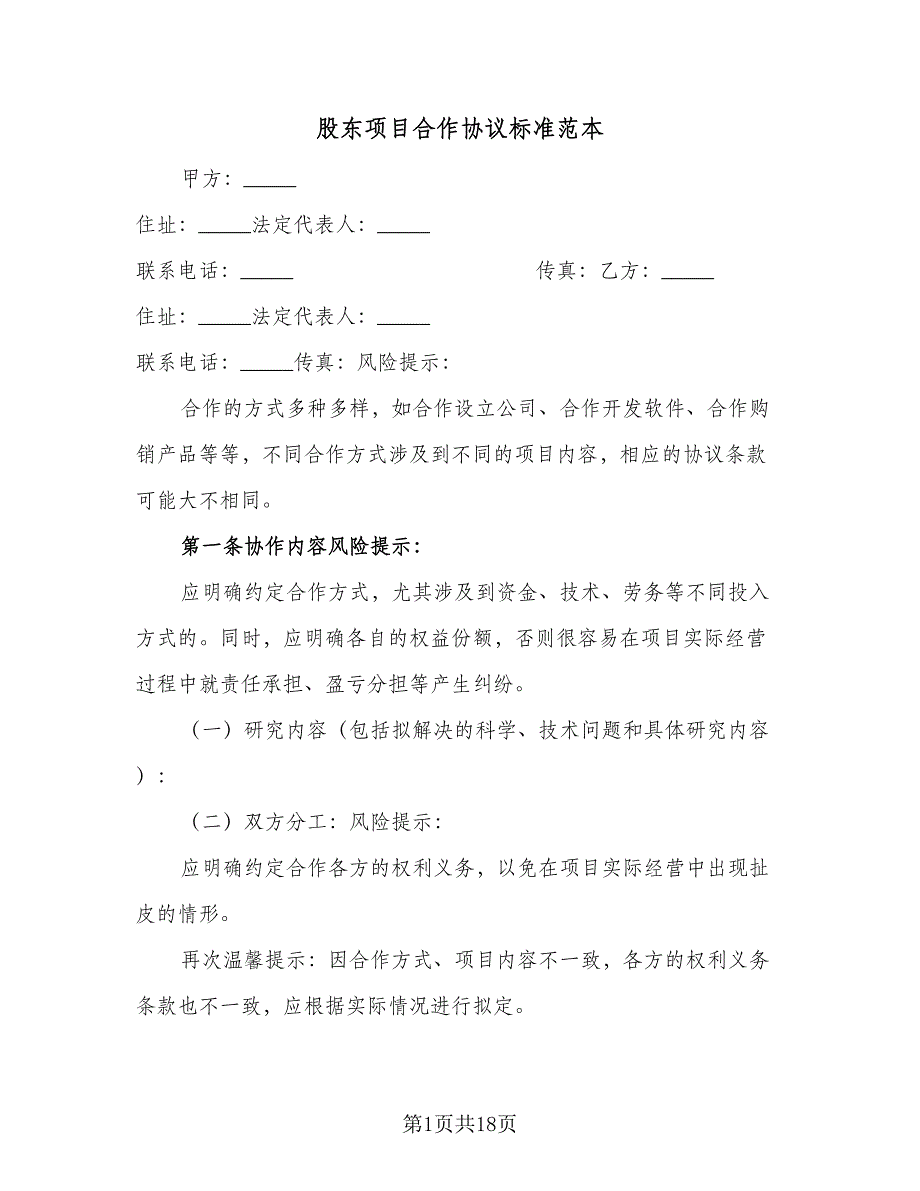 股东项目合作协议标准范本
甲方：_____
住址：_____法定代表人：_____
联系电话：_____ 传真：乙方：_____
住址：_____法定代表人：_____
联系电话：_____传真：风险提示：
合作的方式多种多样，如合作设立公司、合作开发软件、合作购
销产品等等，不同合作方式涉及到不同的项目内容，相应的协议条款
可能大不相同。
第一条协作内容风险提示：
应明确约定合作方式，尤其涉及到资金、技术、劳务等不同投入
方式的。同时，应明确各自的权益份额，否则很容易在项目实际经营
过程中就责任承担、盈亏分担等产生纠纷。
（一）研究内容（包括拟解决的科学、技术问题和具体研究内容
）：
（二）双方分工：风险提示：
应明确约定合作各方的权利义务，以免在项目实际经营中出现扯
皮的情形。
再次温馨提示：因合作方式、项目内容不一致，各方的权利义务
条款也不一致，应根据实际情况进行拟定。
第1页共18页